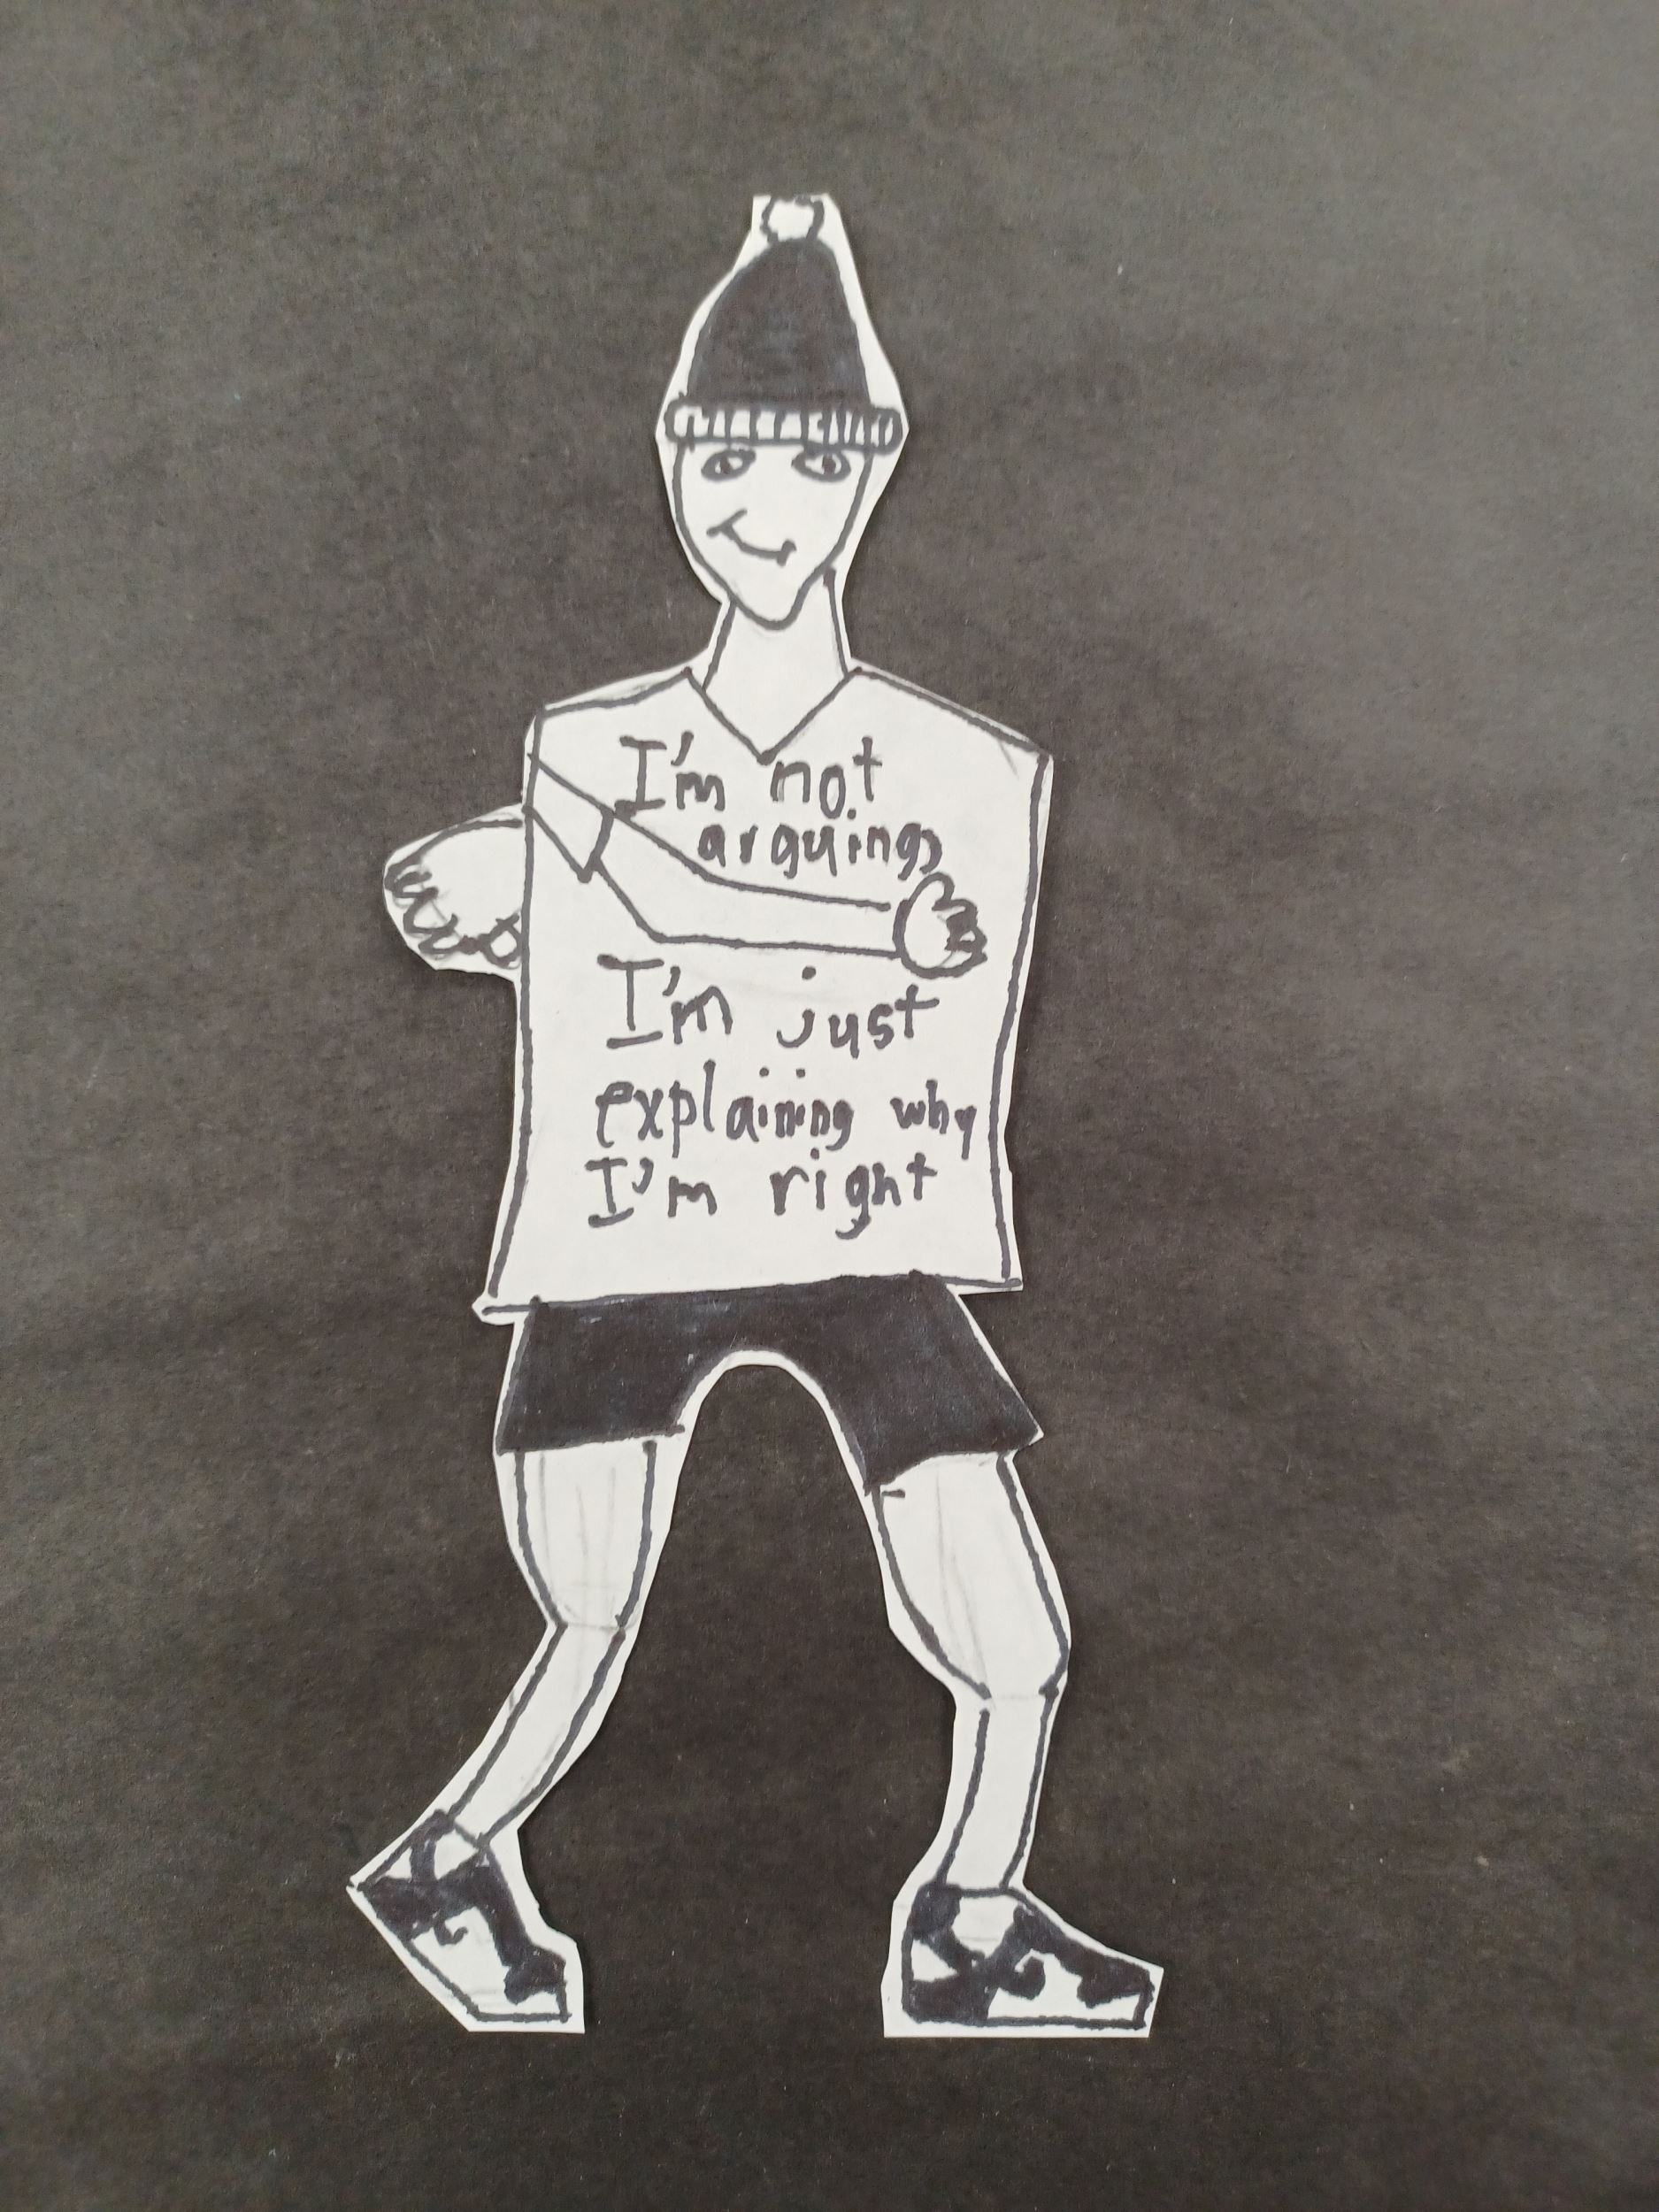 I'm not
arguing,
I'm just
explaining why
I'm right